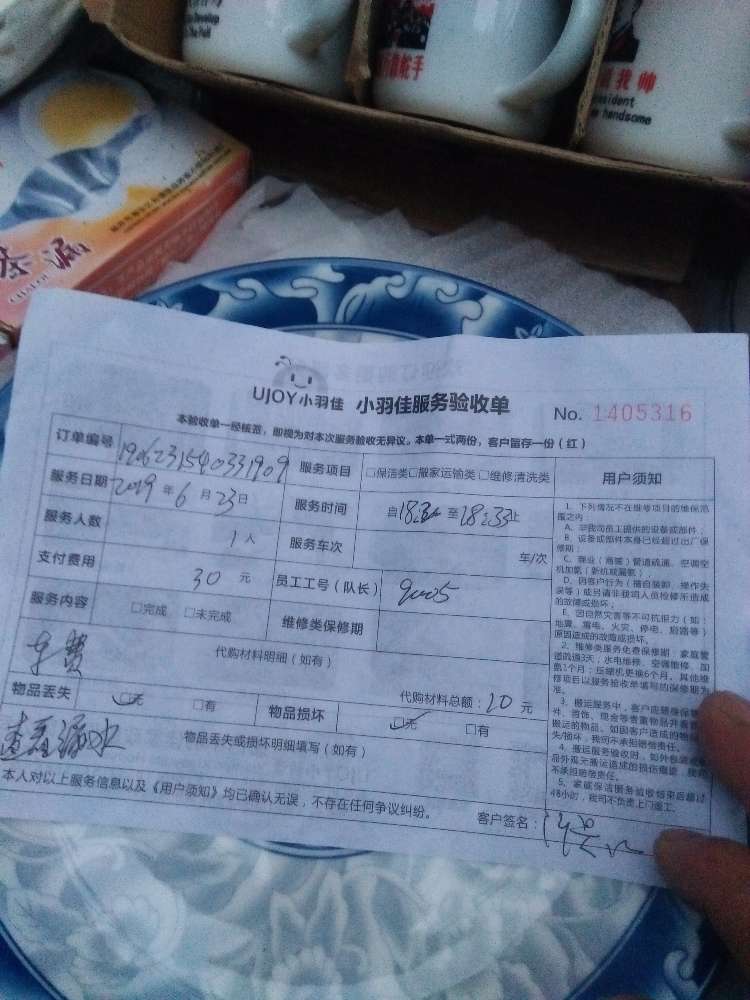 Develop
The Fall
舵手
我帅
resident
handsome
茶
UJOY小羽佳 小羽佳服务验收单 No. 1405316
本验收单一经核签，即视为对本次服务验收无异议。本单一式两份，客户留存一份（红）
订单编号 1906231540331909 服务项目 □保洁类□搬家运输类□维修清洗类 用户须知
服务日期 2019年6月23日 服务时间 自18:32至18:33止
服务人数 1人 服务车次 车/次
支付费用 30元 员工工号（队长） 9005
服务内容 □完成 □未完成 维修类保修期
车费 代购材料明细（如有）
代购材料总额：20元
物品丢失 □无 □有 物品损坏 □无 □有
查看漏水 物品丢失或损坏明细填写（如有）
本人对以上服务信息以及《用户须知》均已确认无误，不存在任何争议纠纷。 客户签名：
1、下列情况不在维修项目的维保范围之内：
A、非我司员工提供的设备或部件；
B、设备或部件本身已经超过出厂保修期；
C、商业（商铺）管道疏通、空调空机加氨（新机或漏氨）
D、因客户行为（擅自装卸、操作失误等）或另请非我司人员检修所造成的故障或损坏；
E、因自然灾害等不可抗拒力（如：地震、雷电、火灾、停电、短路等）原因造成的故障或损坏。
2、维修类服务免费保修期：家庭管道疏通3天；水电维修、空调维修、加氨1个月；压缩机更换6个月，其他维修项目以服务验收单填写的保修期为准。
3、搬运服务中，客户应随身保
件、首饰、现金等贵重物品并看管
搬运的物品。如因客户造成的物品
失/损坏，我司不承担赔偿责任。
4、搬运服务验收时，如外包装或物
品外观无搬运造成的损伤痕迹，我司
不承担赔偿责任。
5、家庭保洁服务验收结束后超过
48小时，我司不负责上门返工。